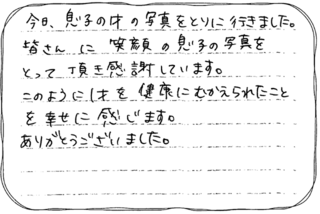 今日、息子の1才の写真をとりに行きました。
皆さんに笑顔の息子の写真を
とって頂き感謝しています。
このように1才を健康にむかえられたこと
を幸せに感じます。
ありがとうございました。